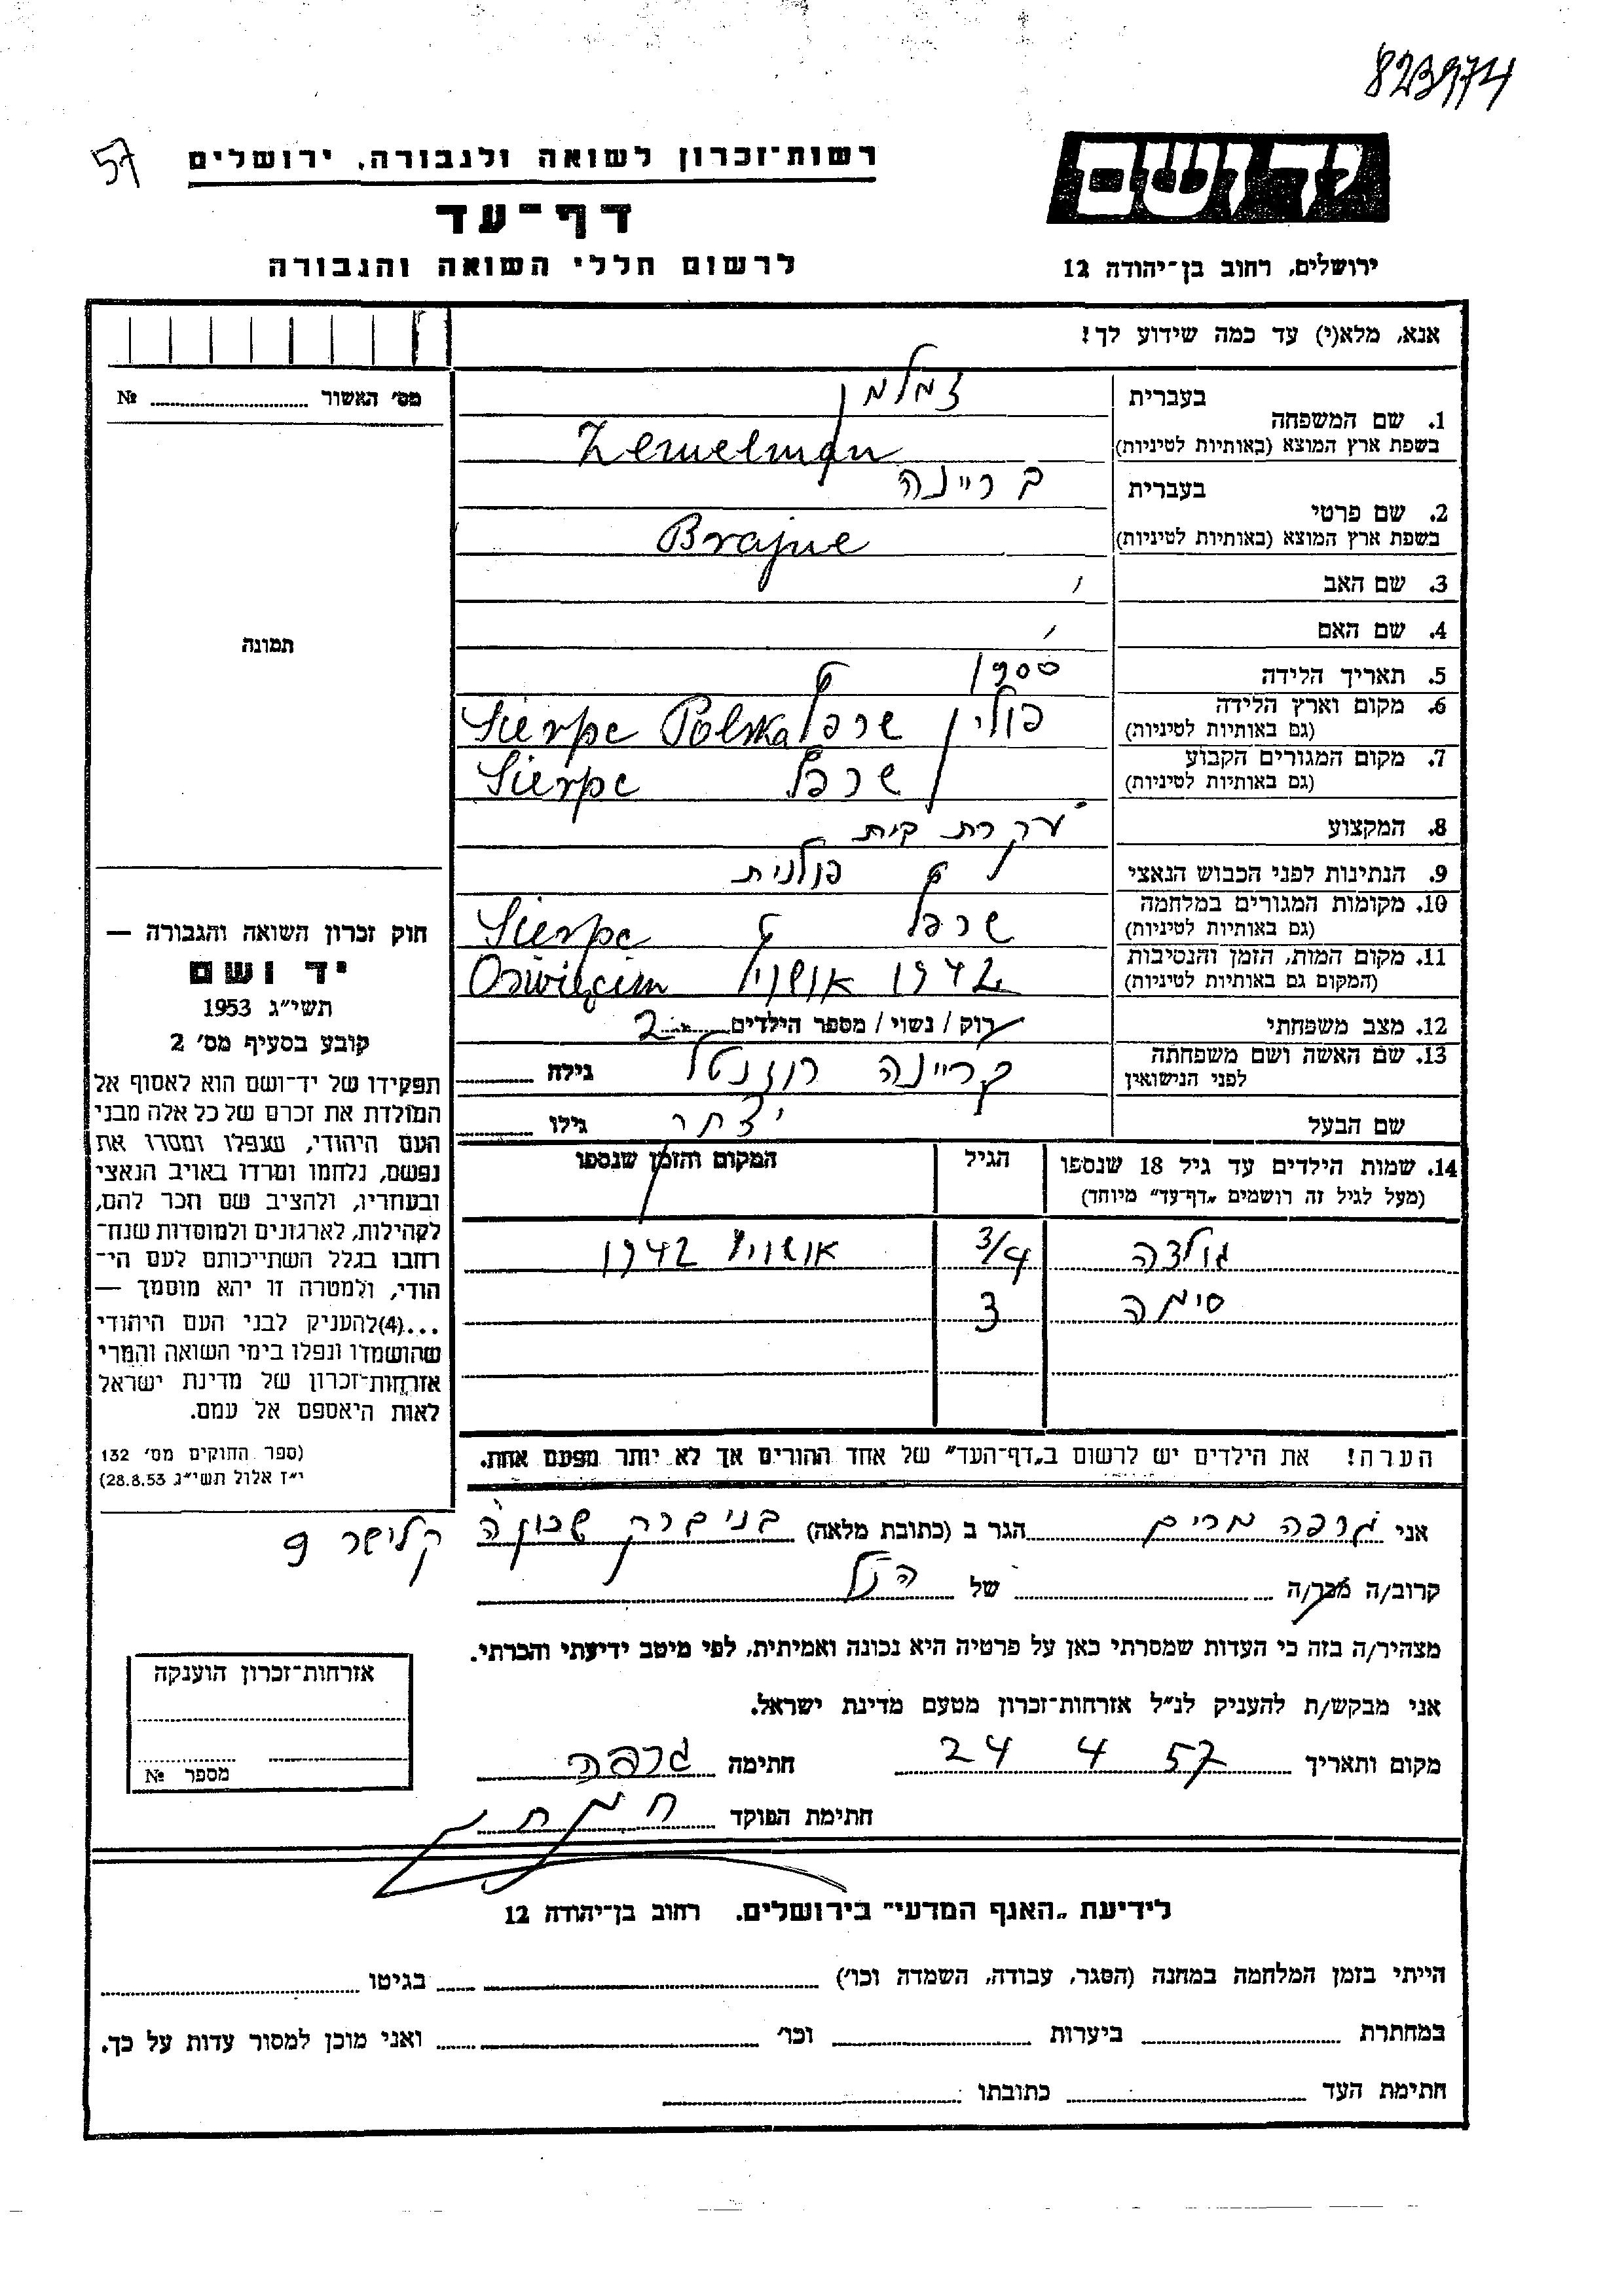 823974
57
רשות־זכרון לשואה ולגבורה, ירושלים
דף־עד
לרשום חללי השואה והגבורה
יד ושם
ירושלים, רחוב בן־יהודה 12
אנא, מלא(י) עד כמה שידוע לך!
מס׳ האשור № 
1. שם המשפחה
בעברית זמלמן
בשפת ארץ המוצא (באותיות לטיניות) Zemelman
2. שם פרטי
בעברית בריינה
בשפת ארץ המוצא (באותיות לטיניות) Brajne
3. שם האב
4. שם האם
5. תאריך הלידה 1900
6. מקום וארץ הלידה פולין שרפץ Sierpc Polska
(גם באותיות לטיניות)
7. מקום המגורים הקבוע שרפץ Sierpc
(גם באותיות לטיניות)
8. המקצוע עקרת בית
9. הנתינות לפני הכבוש הנאצי פולנית
10. מקומות המגורים במלחמה שרפץ Sierpc
(גם באותיות לטיניות)
11. מקום המות, הזמן והנסיבות 1942 אושויץ Oświęcim
(המקום גם באותיות לטיניות)
12. מצב משפחתי רוק / נשוי / מספר הילדים 2
13. שם האשה ושם משפחתה בריינה רוזנטל גילה
לפני הנישואין
שם הבעל יצחק גילו
14. שמות הילדים עד גיל 18 שנספו הגיל המקום והזמן שנספו
(מעל לגיל זה רושמים „דף־עד״ מיוחד)
גולדה 3/4 אושויץ 1942
סימה 3
הערה! את הילדים יש לרשום ב„דף־העד״ של אחד ההורים אך לא יותר מפעם אחת.
תמונה
חוק זכרון השואה והגבורה —
יד ושם
תשי״ג 1953
קובע בסעיף מס׳ 2
תפקידו של יד־ושם הוא לאסוף אל
המולדת את זכרם של כל אלה מבני
העם היהודי, שנפלו ומסרו את
נפשם, נלחמו ומרדו באויב הנאצי
ובעוזריו, ולהציב שם וזכר להם,
לקהילות, לארגונים ולמוסדות שנח־
רבו בגלל השתייכותם לעם הי־
הודי, ולמטרה זו יהא מוסמך —
...(4)להעניק לבני העם היהודי
שהושמדו ונפלו בימי השואה והמרי
אזרחות־זכרון של מדינת ישראל
לאות היאספם אל עמם.
(ספר החוקים מס׳ 132
י״ז אלול תשי״ג 28.8.53)
אני גרפה מרים הגר ב (כתובת מלאה) בני ברק שכונה קלישר 9
קרוב/ה מכר/ה של הנ״ל
מצהיר/ה בזה כי העדות שמסרתי כאן על פרטיה היא נכונה ואמיתית, לפי מיטב ידיעתי והכרתי.
אני מבקש/ת להעניק לנ״ל אזרחות־זכרון מטעם מדינת ישראל.
מקום ותאריך 24 4 57 חתימה גרפה
חתימת הפוקד
אזרחות־זכרון הוענקה
מספר №
לידיעת „האגף המדעי״ בירושלים. רחוב בן־יהודה 12
הייתי בזמן המלחמה במחנה (הסגר, עבודה, השמדה וכו׳) בגיטו
במחתרת ביערות וכו׳ ואני מוכן למסור עדות על כך.
חתימת העד כתובתו